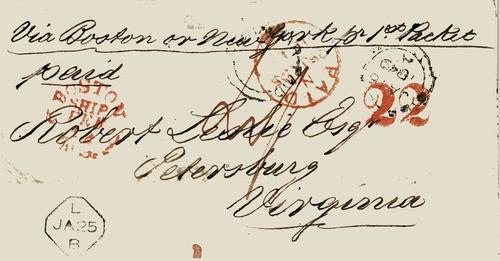 Via Boston or New York pr 1st Packet
paid
PAID
22
BOSTON
SHIP
Robert Leslie Esqr
Petersburg
Virginia
L
JA25
B